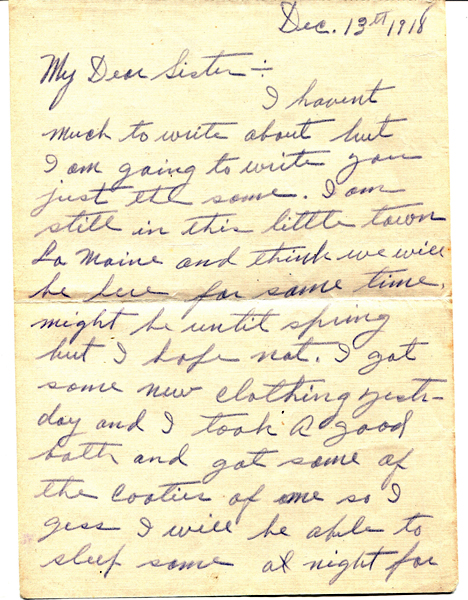 Dec. 13th 1918
My Dear Sister :-
I havent
much to write about but
I am going to write you
just the same. I am
still in this little town
La Maine and think we will
be here for some time.
might be until spring
but I hope not. I got
some new clothing yest-
day and I took a good
bath and got some of
the cooties of me so I
gess I will be able to
sleep some at night for